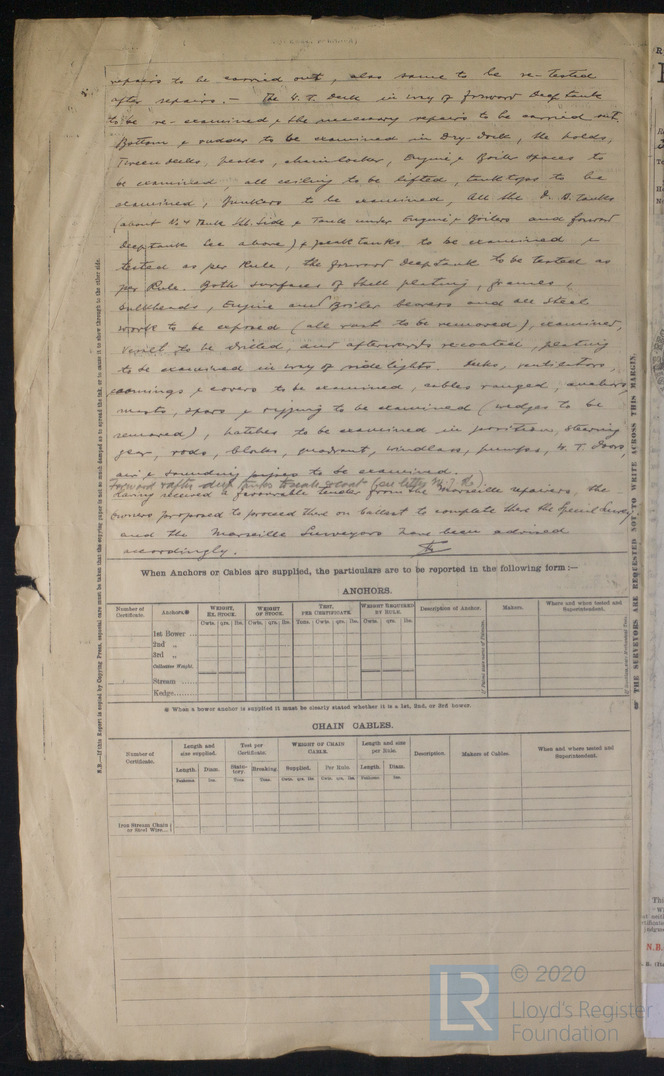 repairs to be carried out, also same to be re-tested
after repairs. — The W.T. Deck in way of forward Deep tank
to be re-examined & the necessary repairs to be carried out.
Bottom & rudder to be examined in Dry-Dock, the holds,
Tween decks, peaks, chainlocker, Engine & Boiler spaces to
be examined, all ceiling to be lifted, tanktops to be
examined, bunkers to be examined, all the D.B. Tanks
(about No 4 Tank Stb. Side & Tank under Engine & Boilers and forward
Deeptank see above) & peak tanks to be examined &
tested as per Rule, the forward Deeptank to be tested as
per Rule. Both surfaces of Shell plating, frames,
bulkheads, Engine and Boiler bearers and all steel
work to be exposed (all rust to be removed), examined,
to be drilled, and afterwards recoated, plating
to be examined in way of sidelights. Decks, ventilators,
coamings & covers to be examined, cables ranged, anchors,
masts, spars & rigging to be examined (wedges to be
removed), hatches to be examined in position, steering
gear, rods, blocks, quadrant, windlass, pumps, W.T. Doors,
air & sounding pipes to be examined.
Forward & after deep tanks to scale & coat (see letter
having received a favourable tender from the Marseille repairers, the
Owners proposed to proceed there on ballast to complete there the Special Survey
and the Marseille Surveyors have been advised
accordingly.
When Anchors or Cables are supplied, the particulars are to be reported in the following form :—
ANCHORS.
Number of Certificate. Anchors.* WEIGHT, EX. STOCK. WEIGHT OF STOCK. TEST, PER CERTIFICATE. WEIGHT REQUIRED BY RULE. Description of Anchor. Makers. Where and when tested and Superintendent.
Cwts. qrs. lbs. Cwts. qrs. lbs. Tons. Cwts. qrs. lbs. Cwts. qrs. lbs.
1st Bower ...
2nd „
3rd „
Collective Weight.
Stream ......
Kedge.......
* When a bower anchor is supplied it must be clearly stated whether it is a 1st, 2nd, or 3rd bower.
CHAIN CABLES.
Number of Certificate. Length and size supplied. Test per Certificate. WEIGHT OF CHAIN CABLE. Length and size per Rule. Description. Makers of Cables. When and where tested and Superintendent.
Length. Diam. Statutory. Breaking. Supplied. Per Rule. Length. Diam.
Fathoms. Ins. Tons. Tons. Cwts. qrs. lbs. Cwts. qrs. lbs. Fathoms. Ins.
Iron Stream Chain
or Steel Wire...
N.B.—If this Report is copied by Copying Press, especial care must be taken that the copying paper is not so much damped as to spread the ink, or to cause it to show through to the other side.
THE SURVEYORS ARE REQUESTED NOT TO WRITE ACROSS THIS MARGIN.
N.B.
LR
© 2020
Lloyd's Register
Foundation